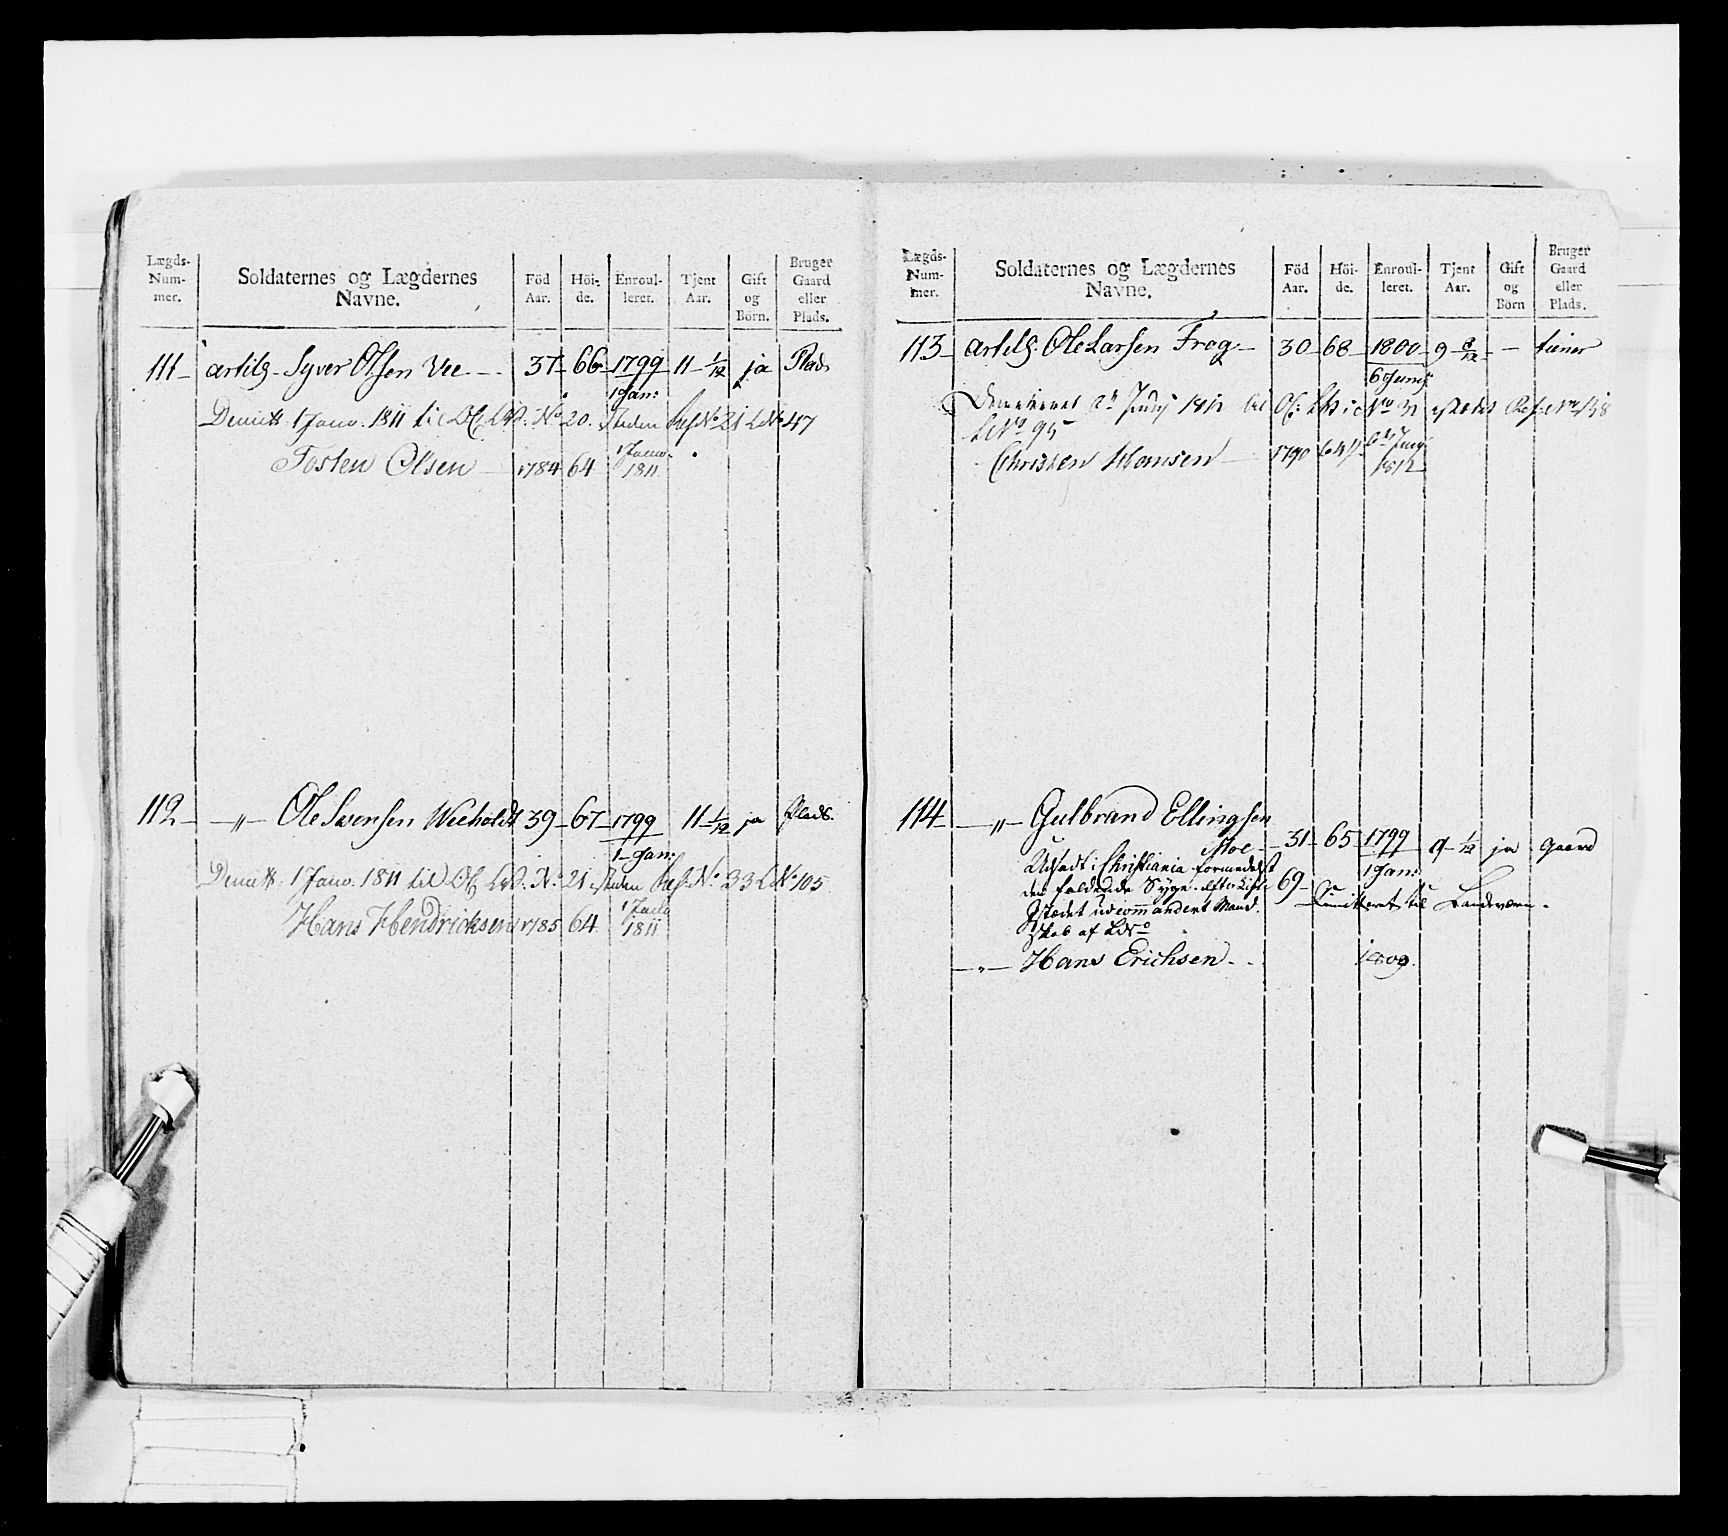 Lægds-
Num-
mer.
Soldaternes og Lægdernes
Navne.
Föd
Aar.
Höi-
de.
Enroul-
leret.
Tjent
Aar.
Gift
og
Börn.
Bruger
Gaard
eller
Plads.
111 artilg. Syver Olsen Vee 37 66 1799 11 1/12 ja Plads
1 Jan:
Demitt. 1 Janv. 1811 til No 20. Steden Ref No 21 L No 47
Tosten Olsen 1784 64 1 Janv. 1811
112 " Ole Svensen Weeholdt 39 67 1799 11 1/12 ja Plads.
1 Jan:
Demitt. 1 Janv. 1811 til No. 21. Steden Ref No. 33 L No 105
Hans Hendricksen 1785 64 1 Janv 1811
Lægds-
Num-
mer.
Soldaternes og Lægdernes
Navne.
Föd
Aar.
Höi-
de.
Enroul-
leret.
Tjent
Aar.
Gift
og
Börn
Bruger
Gaard
eller
Plads.
113 artilg. Ole Larsen Frog 30 68 1800 9 8/12 - tiener
6 Juni
1812 til No istedet Ref: No 138
L No 95
Christen Hansen 1790 64 1812
114 " Gulbrand Ellingsen
Moe 31 65 1799 9 1/12 ja gaard
1 Jan:
Udsadt i Christiania formedelst
den faldende Syge. 69 til Landeværn.
Istædet udcommandert Mand-
skab af L No
" Hans Erichsen 1809.